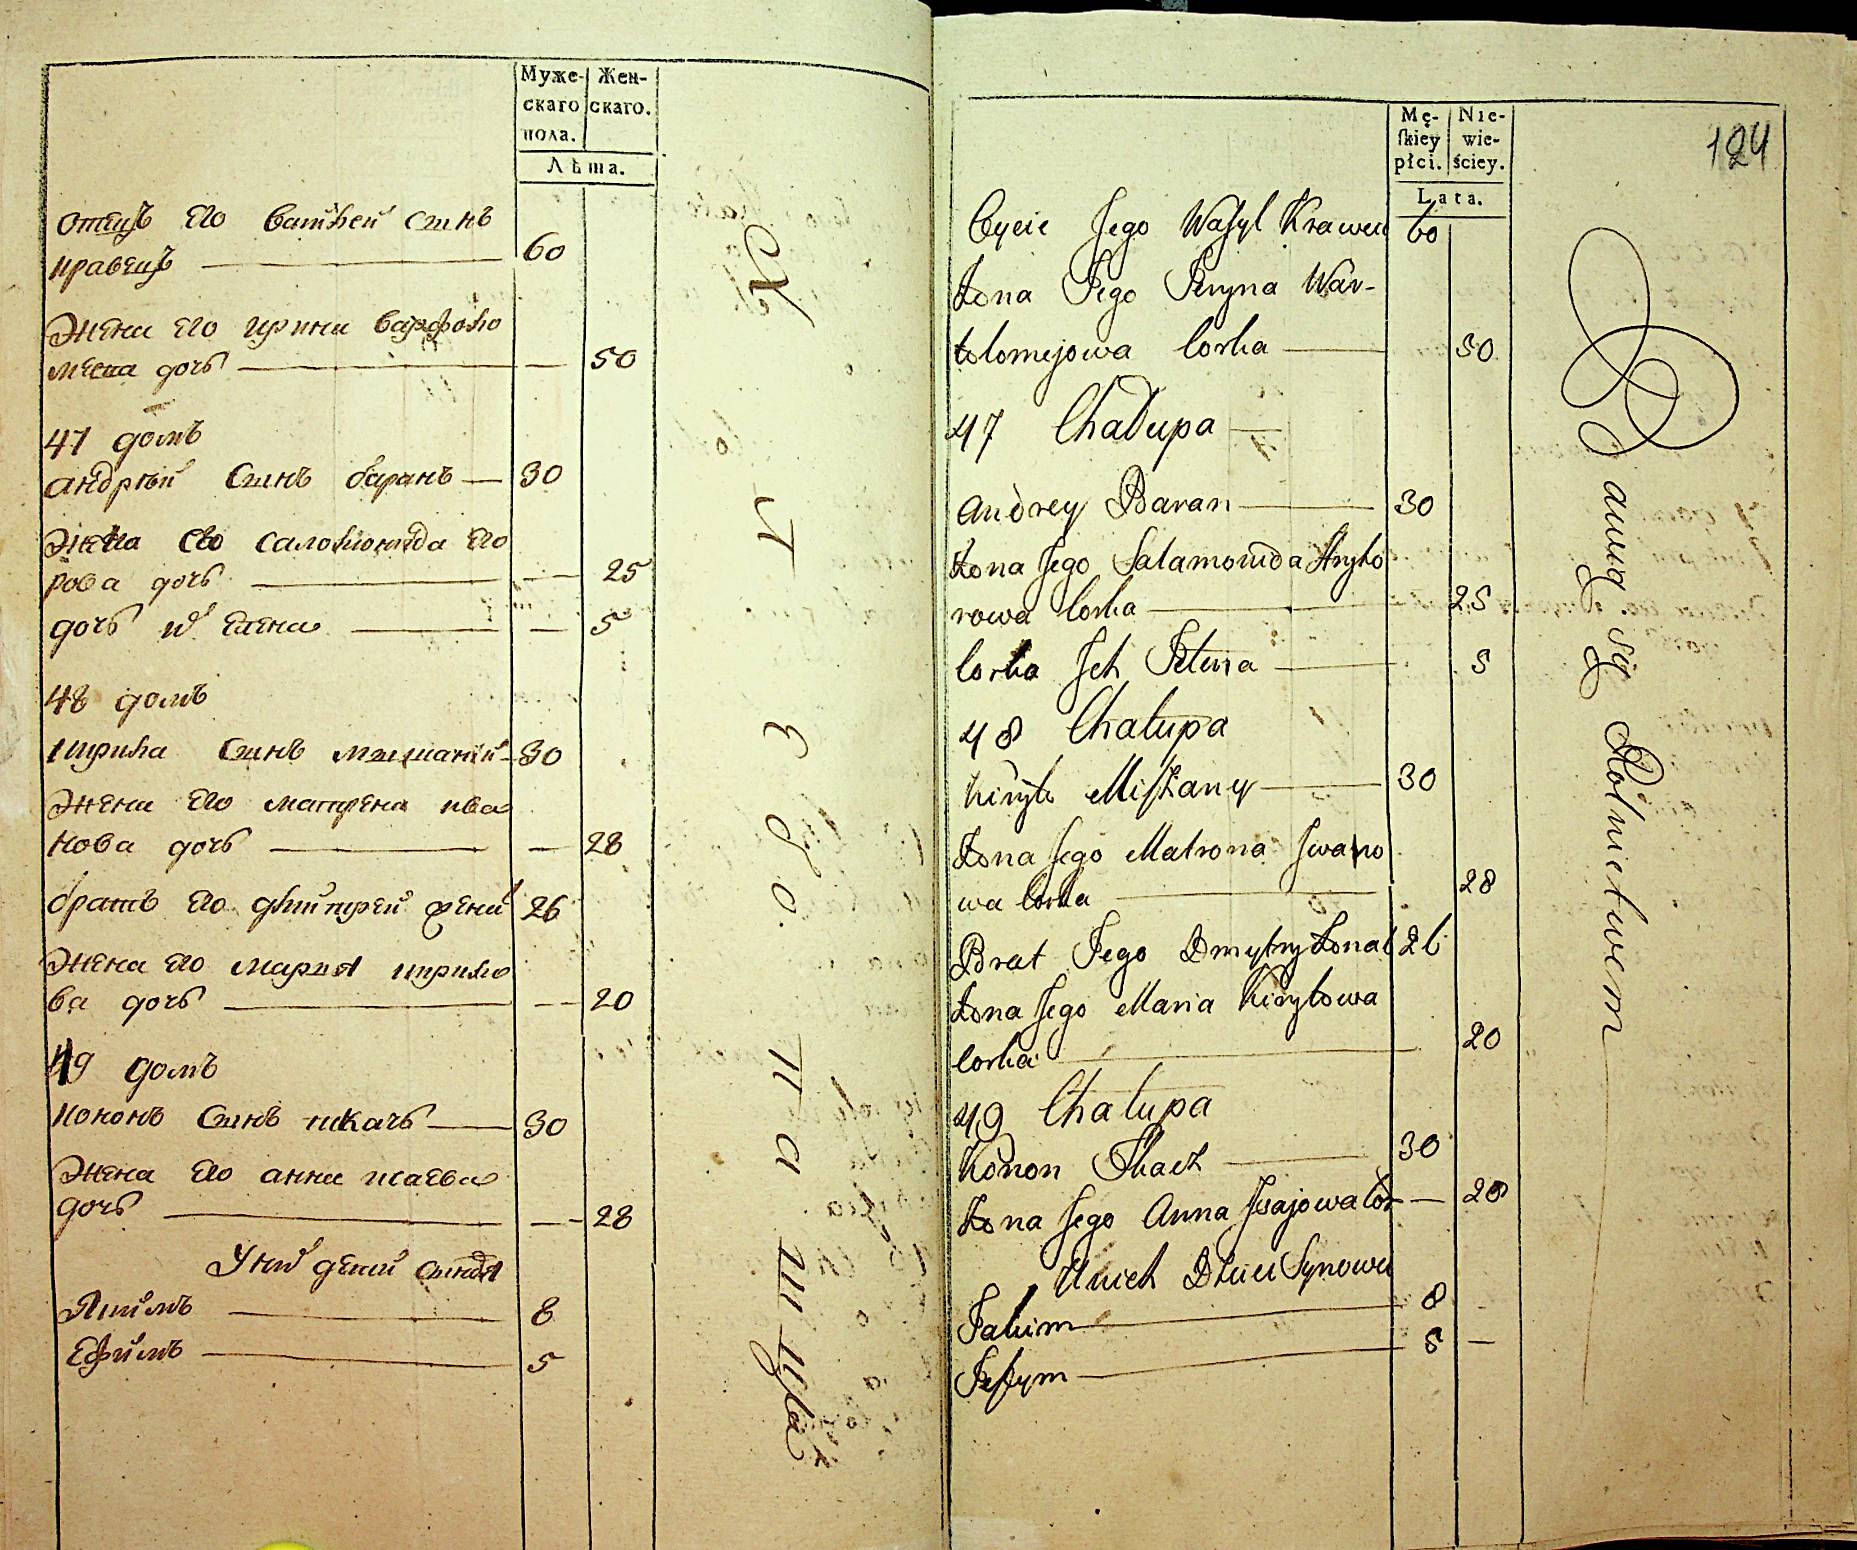 Муже-
скаго
пола.
Жен-
скаго.
Лѣта.
отецъ его василей синъ
кравецъ — 60
жена его ирина варфоло
меева дочь — 50
47 домъ
андрѣй синъ баранъ — 30
жена его саломонида его
рова дочь — 25
дочь их елена — 5
48 домъ
кирила синъ мишаний — 30
жена его матрена ива
нова дочь — 28
братъ его дмитрей женат 26
жена его мария кирило
ва дочь — 20
49 домъ
кононъ синъ ткачъ — 30
жена его анна исаева
дочь — 28
У них детей
Якимъ — 8
Ефимъ — 5
Mę-
skiey
płci.
Nie-
wie-
ściey.
Lata.
124
Oycic Jego Wasyl Krawec 60
Żona Jego Jeryna War-
tolomejowa Corka — 50
47 Chałupa
Andrey Baran — 30
Żona Jego Salamonida Hryho
rowa Corka — 25
Corka Jch Jelena — 5
48 Chałupa
Kiryło Miszany — 30
Żona Jego Matrona Jwano
wa Corka — 28
Brat Jego Dmytry Żonat 26
Żona Jego Maria Kiryłowa
Corka — 20
49 Chałupa
Konon Tkacz — 30
Żona Jego Anna Jsajowa Cor — 28
U nich Dzieci Synowie
Jakim — 8
Jefym — 5 —
бавią się Rolnictwem